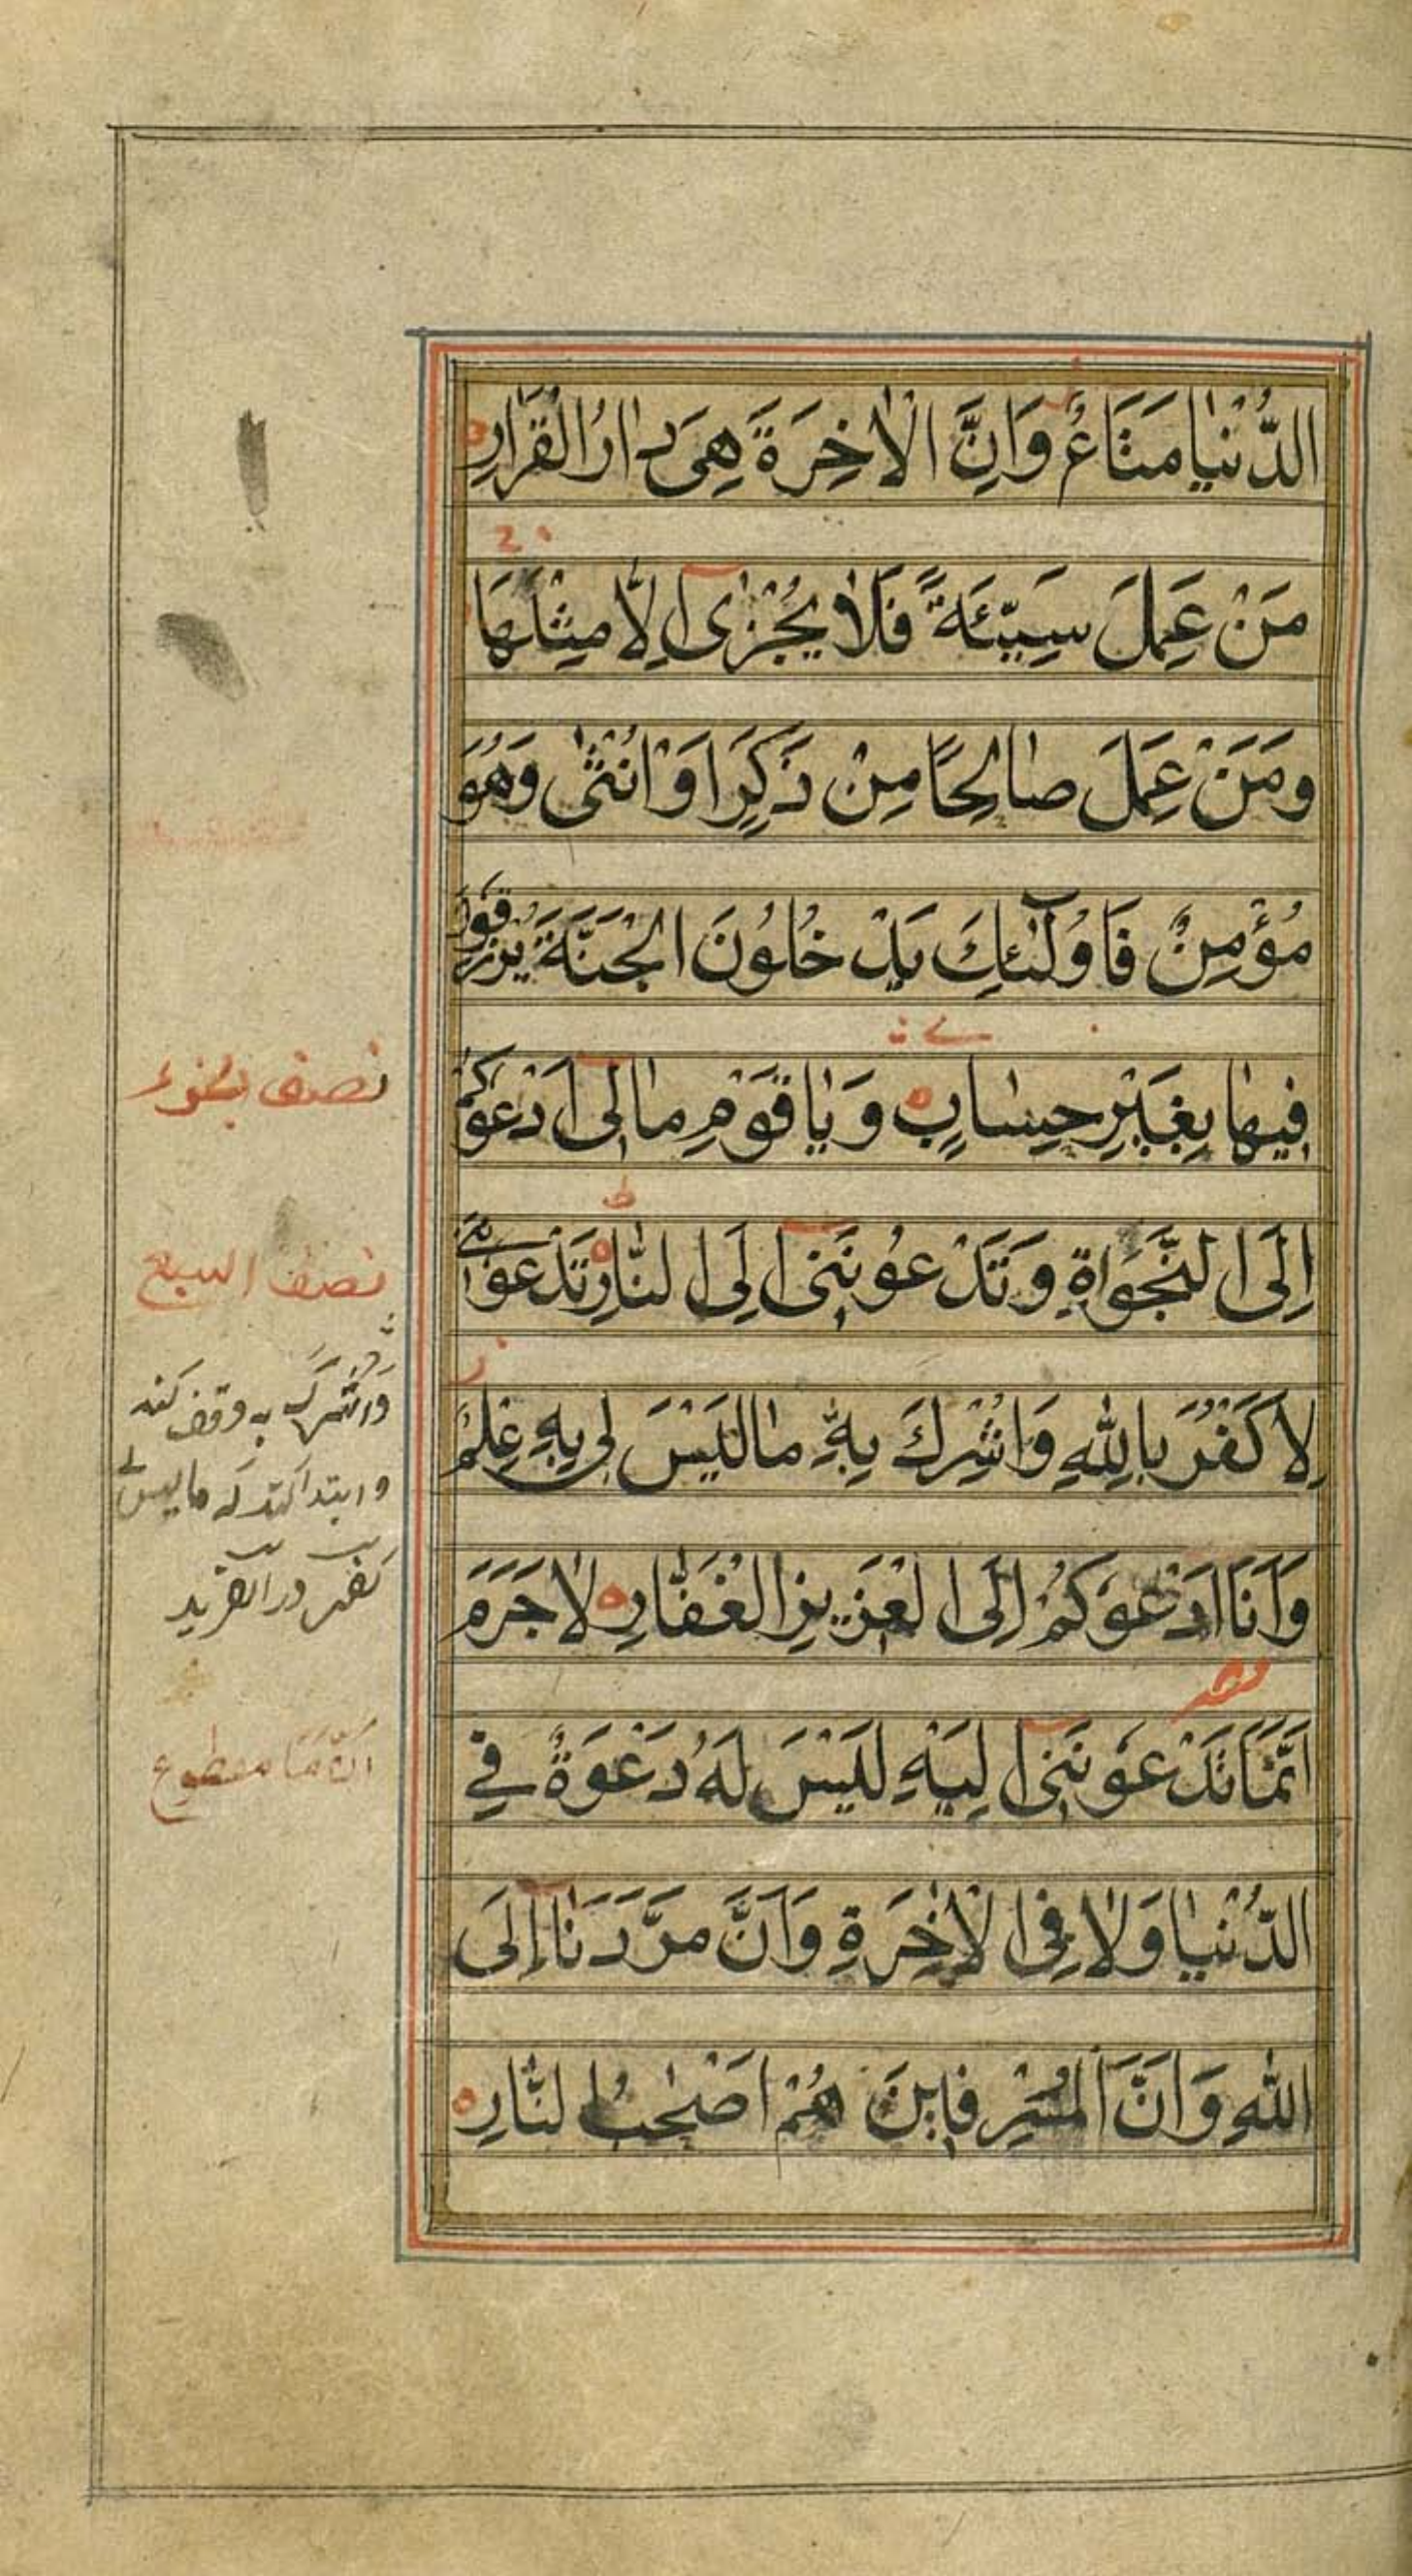 الدُّنْيٰا مَتٰاعٌ وَاِنَّ الْاٰخِرَةَ هِىَ دٰارُ الْقَرٰارِ
مَنْ عَمِلَ سَيِّئَةً فَلٰا يُجْزٰى اِلّٰا مِثْلَهٰا
وَمَنْ عَمِلَ صٰالِحًا مِنْ ذَكَرٍ اَوْ اُنْثٰى وَهُوَ
مُؤْمِنٌ فَاُولٰٓئِكَ يَدْخُلُونَ الْجَنَّةَ يُرْزَقُونَ
فِيهٰا بِغَيْرِ حِسٰابٍ وَيٰا قَوْمِ مٰا لِى اَدْعُوكُمْ
اِلَى النَّجَوٰاةِ وَتَدْعُونَنِى اِلَى النّٰارِ تَدْعُونَنِى
لِاَكْفُرَ بِاللّٰهِ وَاُشْرِكَ بِهِ مٰا لَيْسَ لِى بِهِ عِلْمٌ
وَاَنَا اَدْعُوكُمْ اِلَى الْعَزِيزِ الْغَفّٰارِ لٰا جَرَمَ
اَنَّمٰا تَدْعُونَنِى اِلَيْهِ لَيْسَ لَهُ دَعْوَةٌ فِى
الدُّنْيٰا وَلٰا فِى الْاٰخِرَةِ وَاَنَّ مَرَدَّنٰا اِلَى
اللّٰهِ وَاَنَّ الْمُسْرِفِينَ هُمْ اَصْحٰبُ النّٰارِ
نصف
نصف السبع
به وقف كند
وابتدا كند كه ما ليس لى